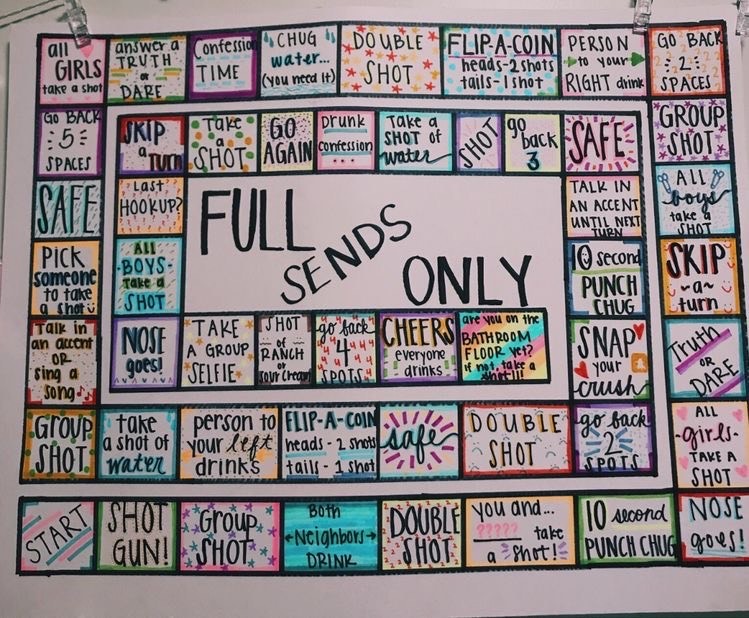 all
GIRLS
take a shot
answer a
TRUTH
or
DARE
Confession
TIME
CHUG
water...
(you need it)
DOUBLE
SHOT
FLIP-A-COIN
heads-2 shots
tails-1 shot
PERSON
to your
RIGHT drink
GO BACK
2
SPACES
GO BACK
5
SPACES
SKIP
a TURN
Take
a SHOT
GO
AGAIN
Drunk
confession
...
Take a
SHOT OF
water
SHOT
go
back
3
SAFE
GROUP
SHOT
SAFE
Last
HOOKUP?
FULL
SENDS
ONLY
TALK IN
AN ACCENT
UNTIL NEXT
TURN
ALL
boys
take a
SHOT
Pick
someone
to take
a shot
ALL
-BOYS-
TAKE a
SHOT
10 second
PUNCH
CHUG
SKIP
~a~
turn
Talk in
an accent
OR
sing a
song
NOSE
goes!
TAKE
A GROUP
SELFIE
SHOT
OF
RANCH
or
Sour Cream
go back
4
SPOTS
CHEERS
everyone
drinks
are you on the
BATHROOM
FLOOR yet?
if not, take a
shot!!!
SNAP
your
crush
Truth
OR
DARE
GROUP
SHOT
take
a shot of
water
person to
your left
drinks
FLIP-A-COIN
heads - 2 shots
tails - 1 shot
safe
DOUBLE
SHOT
go back
2
SPOTS
ALL
-girls-
TAKE A
SHOT
START
SHOT
GUN!
Group
SHOT
Both
Neighbors
DRINK
DOUBLE
SHOT
you and...
????? take
a shot!
10 second
PUNCH CHUG
NOSE
goes!